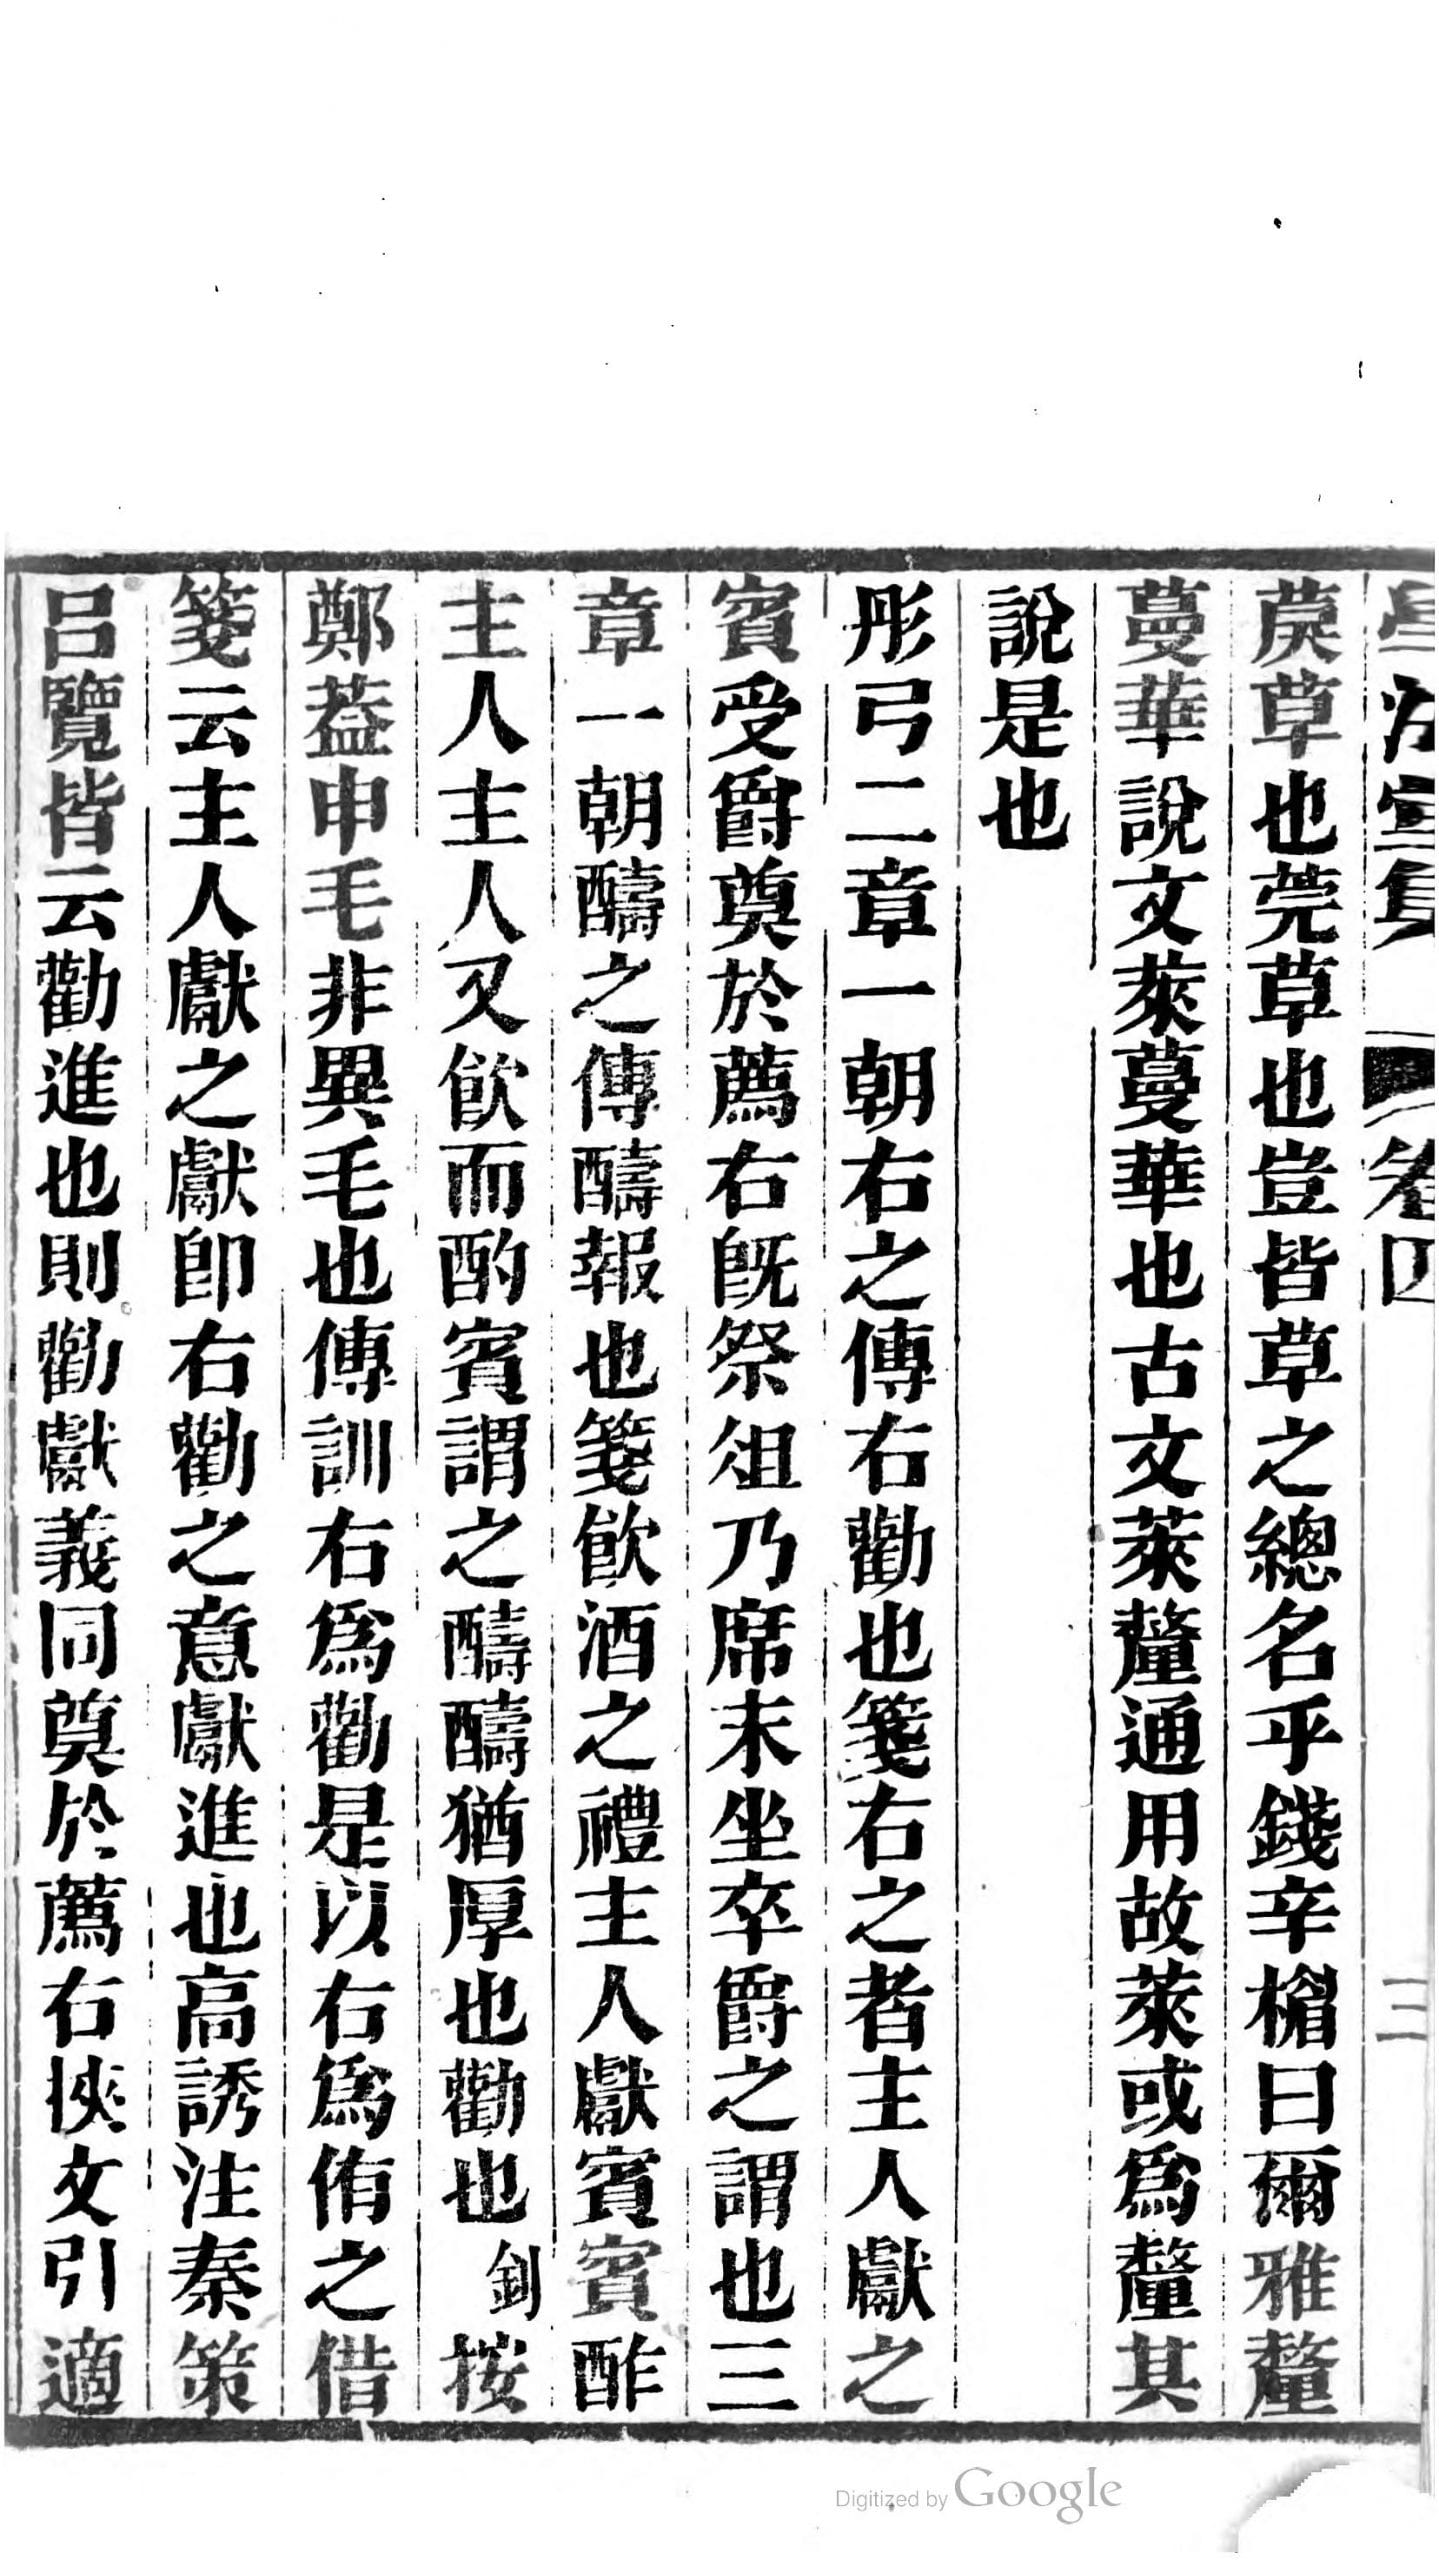 卷四
三
萸草也莞草也豈皆草之總名乎錢辛楣曰爾雅釐
蔓華說文萊蔓華也古文萊釐通用故萊或爲釐其
說是也
彤弓二章一朝右之傳右勸也箋右之者主人獻之
賓受爵奠於薦右旣祭俎乃席末坐卒爵之謂也三
章一朝醻之傳醻報也箋飮酒之禮主人獻賓賓酢
主人主人又飮而酌賓謂之醻醻猶厚也勸也釗按
鄭葢申毛非異毛也傳訓右爲勸是以右爲侑之借
箋云主人獻之獻卽右勸之意獻進也高誘注秦策
呂覽皆云勸進也則勸獻義同奠於薦右挾文引適
Digitized by Google